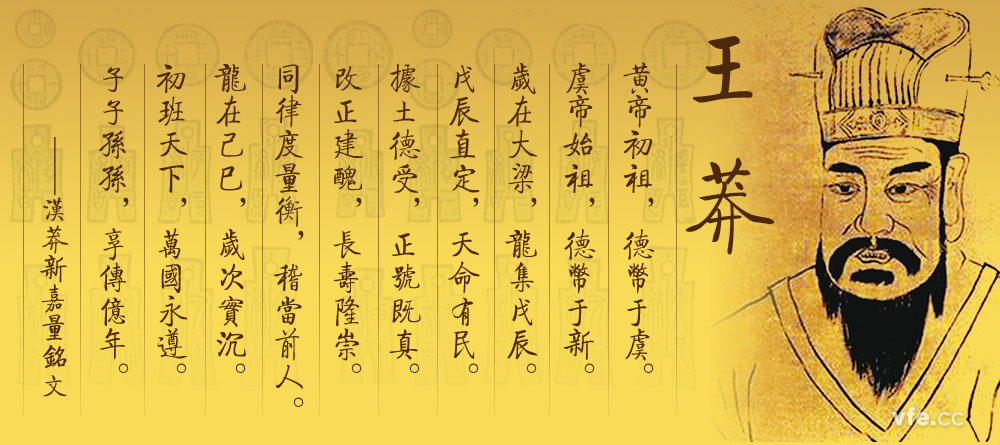 王莽
黄帝初祖，德幣于虞。
虞帝始祖，德幣于新。
歲在大梁，龍集戊辰。
戊辰直定，天命有民。
據土德受，正號既真。
改正建醜，長壽隆崇。
同律度量衡，稽當前人。
龍在己巳，歲次實沉。
初班天下，萬國永遵。
子子孫孫，享傳億年。
——漢莽新嘉量銘文
vfe.cc